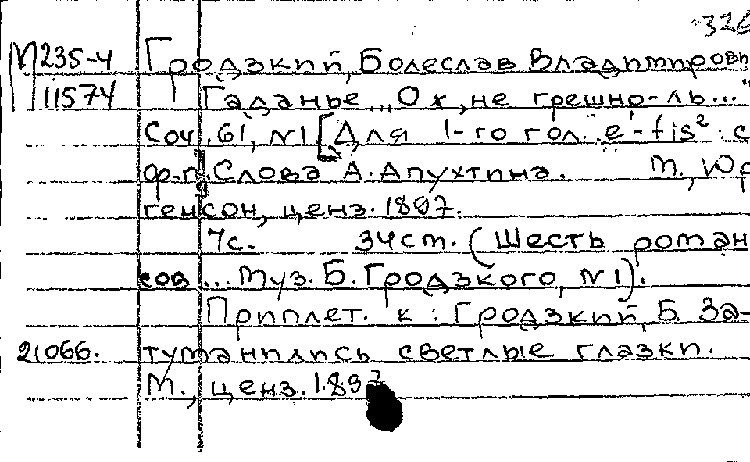 326
М235-4 Гродзкий, Болеслав Владимирови
11574 Гаданье „Ох, не грешно-ль..."
Соч. 61, №1 [Для 1-го гол. e'-fis² с
ф.-п.] Слова А. Апухтина. М., Юр
генсон, ценз. 1897.
7с. 34cm. (Шесть роман
сов ... Муз. Б. Гродзкого, №1).
Приплет. к: Гродзкий, Б. За-
21066. туманились светлые глазки.
М., ценз. 1897